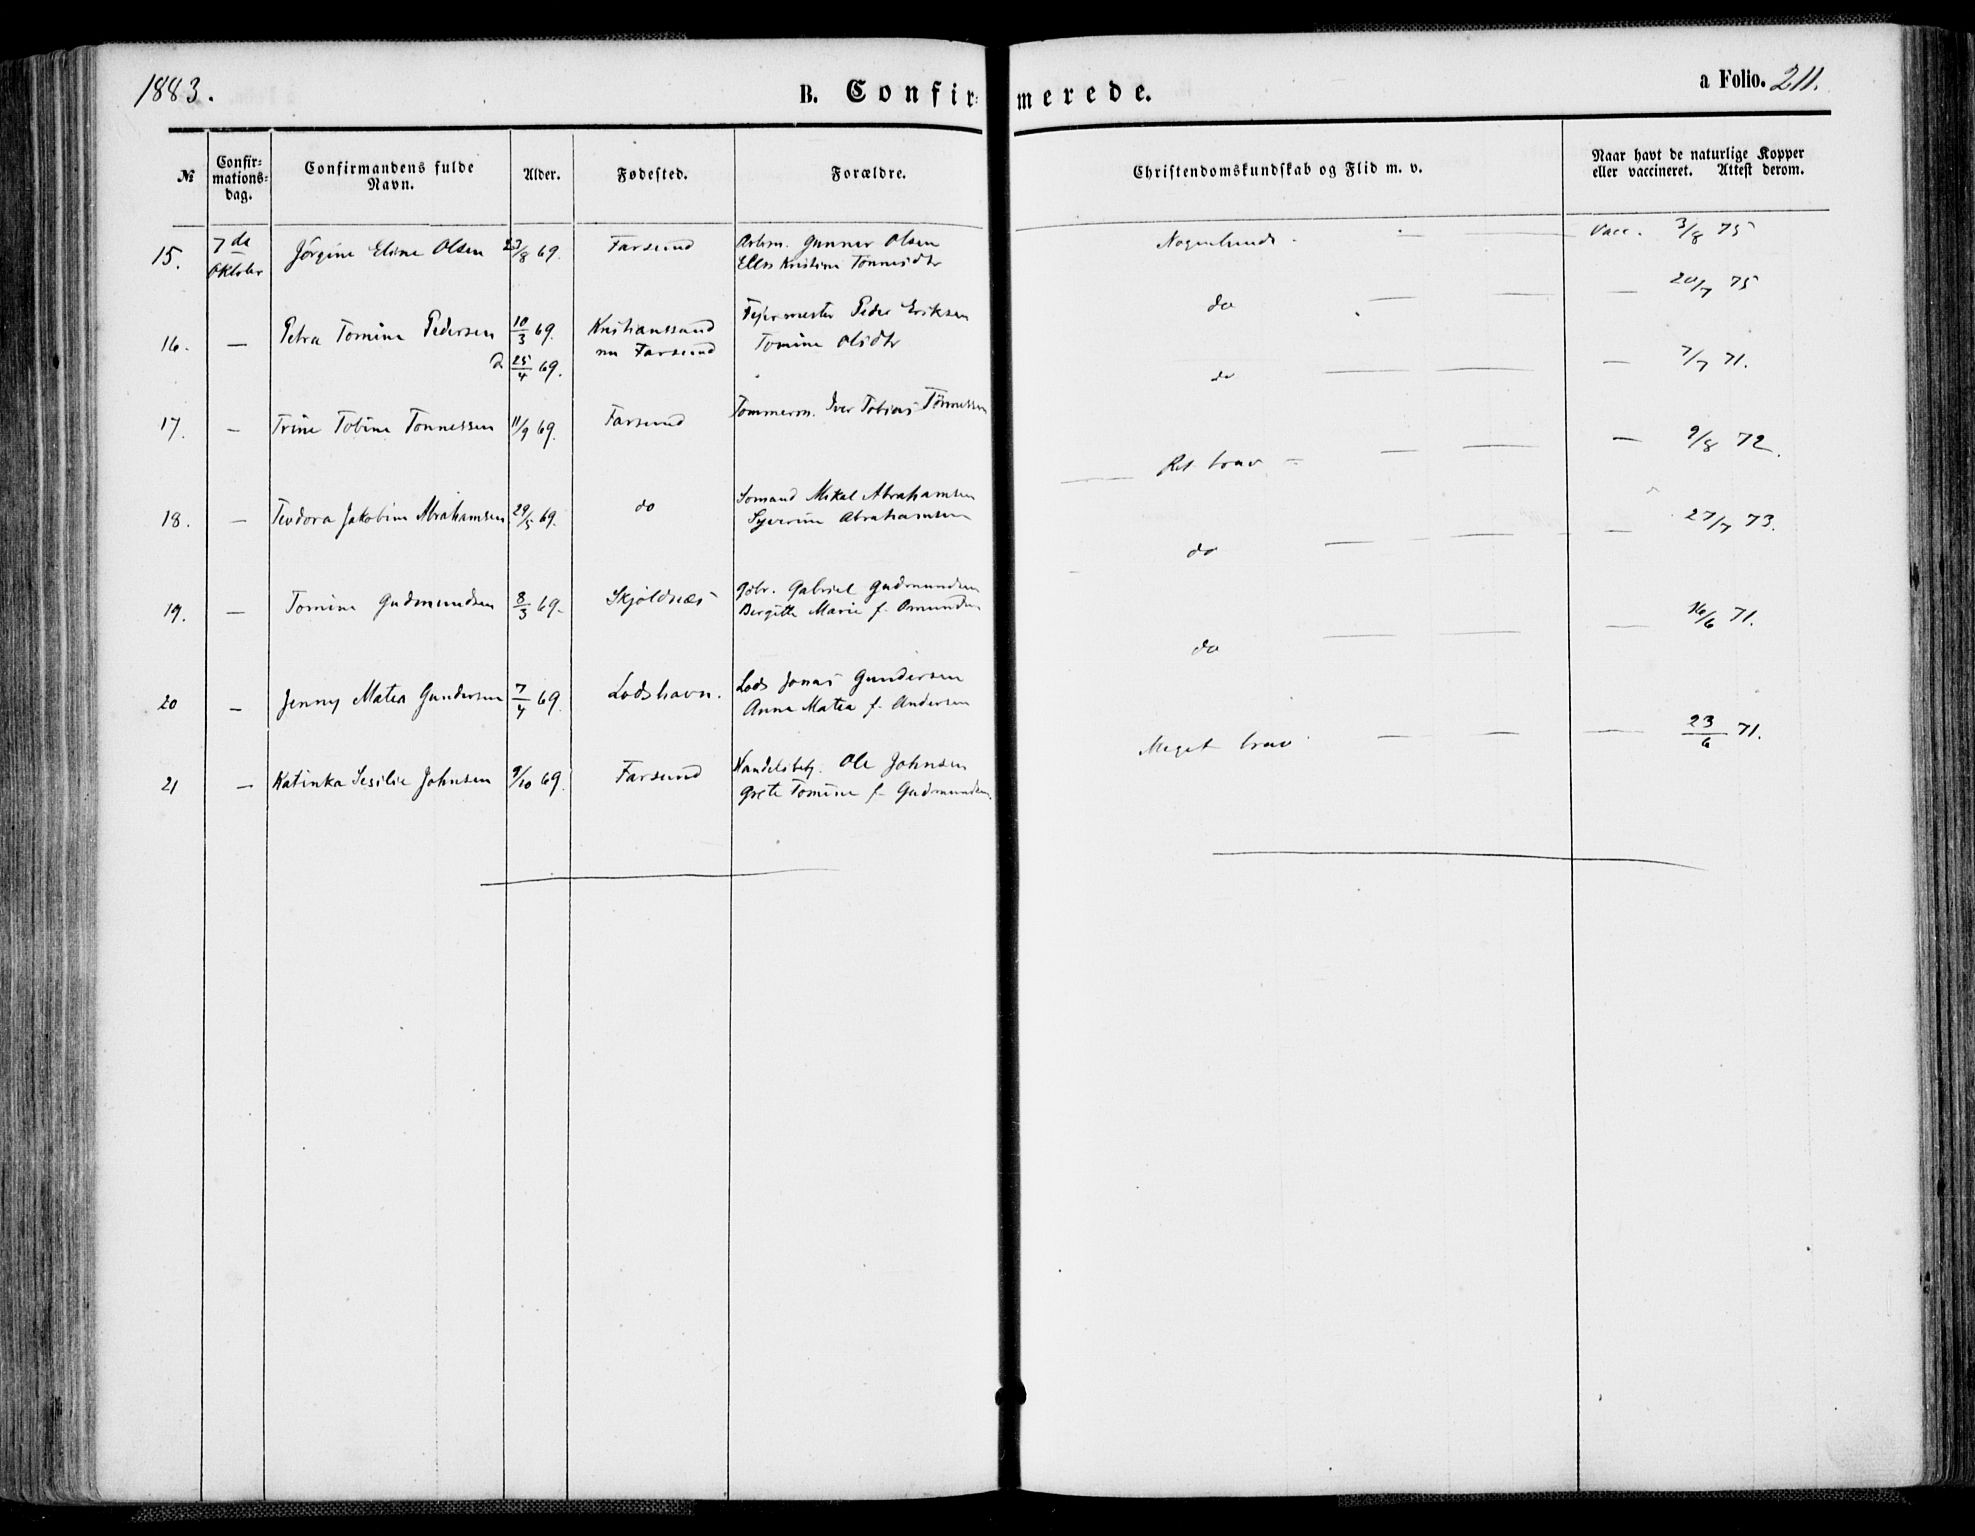 1883.
B. Confirmerede.
a Folio. 211.
№
Confirmationsdag.
Confirmandens fulde Navn.
Alder.
Fødested.
Forældre.
Christendomskundskab og Flid m. v.
Naar havt de naturlige Kopper eller vaccineret. Attest derom.
15. 7de Oktober Jörgine Eline Olsen 23/8 69. Farsund Arbm. Gunner Olsen Nogenlunde - — — Vacc. 3/8 75
Ellen Kristine Tønnesdtr
16. — Petra Tomine Pedersen 10/3 69. Kristianssund Fejermester Peder Eriksen do — — — 20/7 75
D 25/4 69. nu Farsund Tomine Olsdtr
17. — Trine Tobine Tonnessen 11/9 69. Farsund Tommerm. Iver Tobias Tönnessen do — — — 7/7 71.
18. — Teodora Jakobine Abrahamsen 29/5 69. do Somand Mikal Abrahamsen Ret brav — — — — 9/8 72.
Syverine Abrahamsen
19. — Tomine Gudmundsen 8/3 69. Skjoldnæs Gbr. Gabriel Gudmundsen do — — — 27/7 73.
Bergitte Marie f. Osmundsen
20 — Jenny Matea Gundersen 7/4 69. Lodshavn. Lods Jonas Gundersen do — — — 16/6 71.
Anna Matea f. Andersen
21 — Katinka Sesilie Johnsen 9/10 69. Farsund Handelsbetj. Ole Johnsen Meget brav — — — 23/6 71.
Grete Tomine f. Gudmundsen.